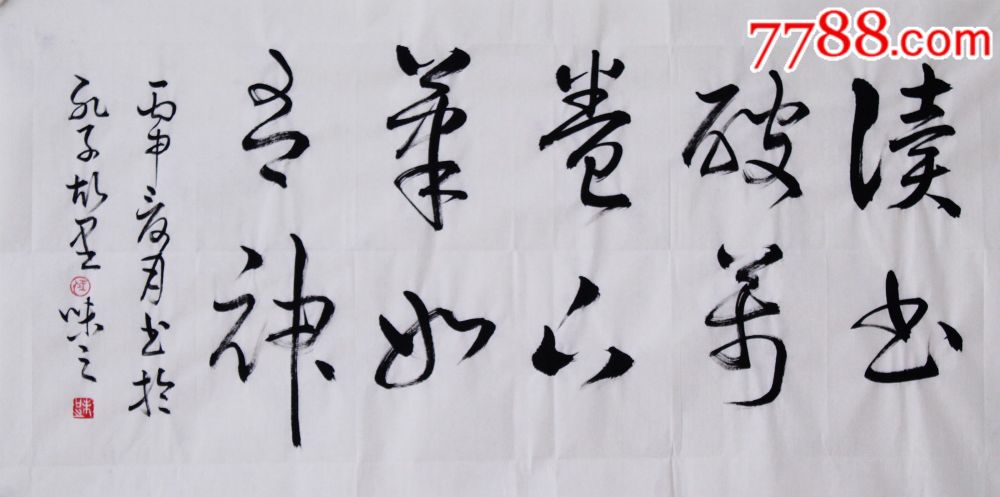 7788.com
讀書
破萬
卷下
筆如
有神
丙申夏月書於
孔子故里 味之